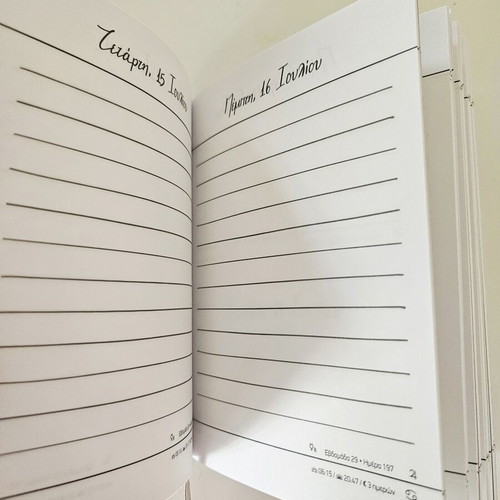 Τετάρτη, 15 Ιουλίου
Πέμπτη, 16 Ιουλίου
Εβδομάδα 29 • Ημέρα 197
06:15 / 20:47 / 3 ημερών